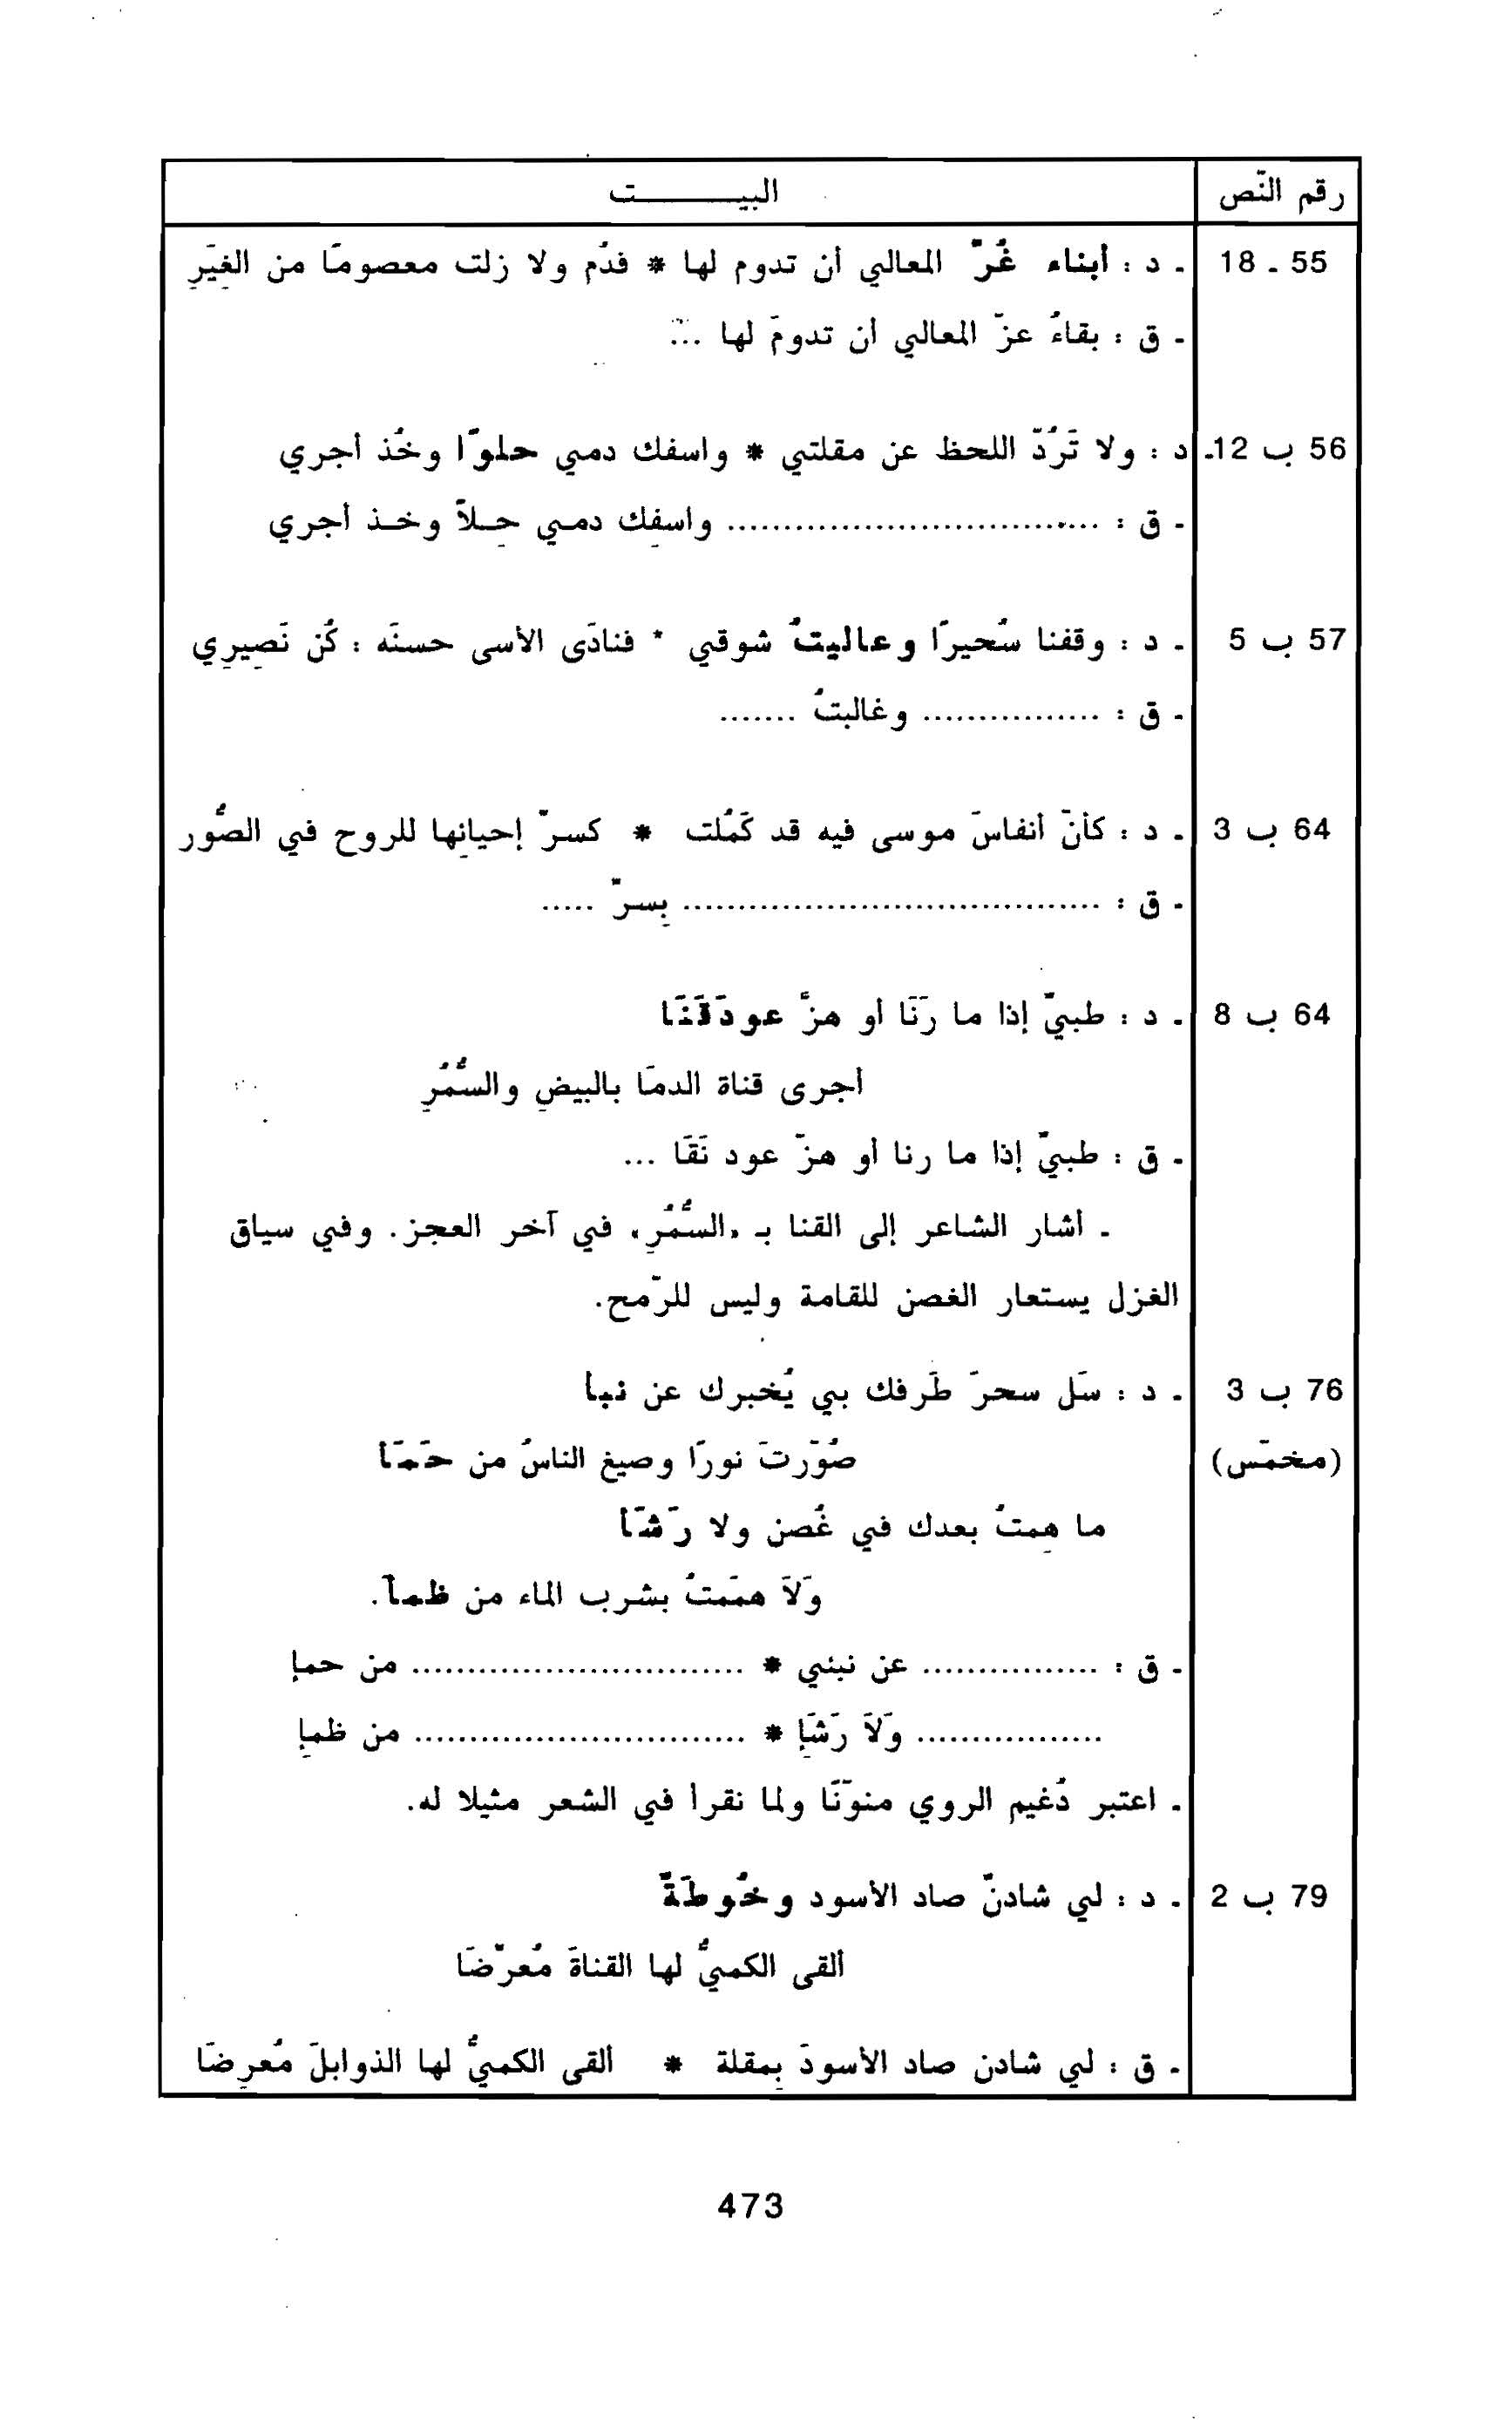 رقم النّص البيـــــــت
55 - 18 - د : أبناء غُرّ المعالي أن تدوم لها * فدُم ولا زلت معصومًا من الغِيَرِ
- ق : بقاءُ عزّ المعالي أن تدومَ لها ...
56 ب 12- د : ولا تَرُدّ اللحظ عن مقلتي * واسفك دمي حلوًا وخُذ أجري
- ق : ................................ واسفِك دمي حِلاّ وخذ أجري
57 ب 5 - د : وقفنا سُحيرًا وعاليتُ شوقي * فنادَى الأسى حسنَه : كُن نَصِيرِي
- ق : ................ وغالبتُ .......
64 ب 3 - د : كأنّ أنفاسَ موسى فيه قد كَمُلت * كسرّ إحيانِها للروح في الصُّور
- ق : ...................................... بِسرّ .....
64 ب 8 - د : ظبيّ إذا ما رَنَا أو هزَّ عودَقَنَا
أجرى قناة الدمَا بالبيضِ والسُّمُرِ
- ق : ظبيّ إذا ما رنا أو هزّ عود نَقَا ...
- أشار الشاعر إلى القنا بـ «السُّمُرِ» في آخر العجز. وفي سياق
الغزل يستعار الغصن للقامة وليس للرّمح.
76 ب 3 - د : سَل سحرَ طَرفك بي يُخبرك عن نبا
(مخمّس) صُوّرتَ نورًا وصيغ الناسُ من حَمَا
ما هِمتُ بعدك في غُصن ولا رَشَا
وَلاَ هممَتُ بشرب الماء من ظمآ.
- ق : ................ عن نبئي * .............................. من حمإ
................. وَلاَ رَشَإٍ * .............................. من ظمإِ
- اعتبر دُغيم الروي منوّنًا ولما نقرأ في الشعر مثيلا له.
79 ب 2 - د : لي شادنّ صاد الأسود وخُوطَةً
ألقى الكميُّ لها القناةَ مُعرّضَا
- ق : لي شادن صاد الأسودَ بِمقلة * ألقى الكميُّ لها الذوابلَ مُعرِضَا
473